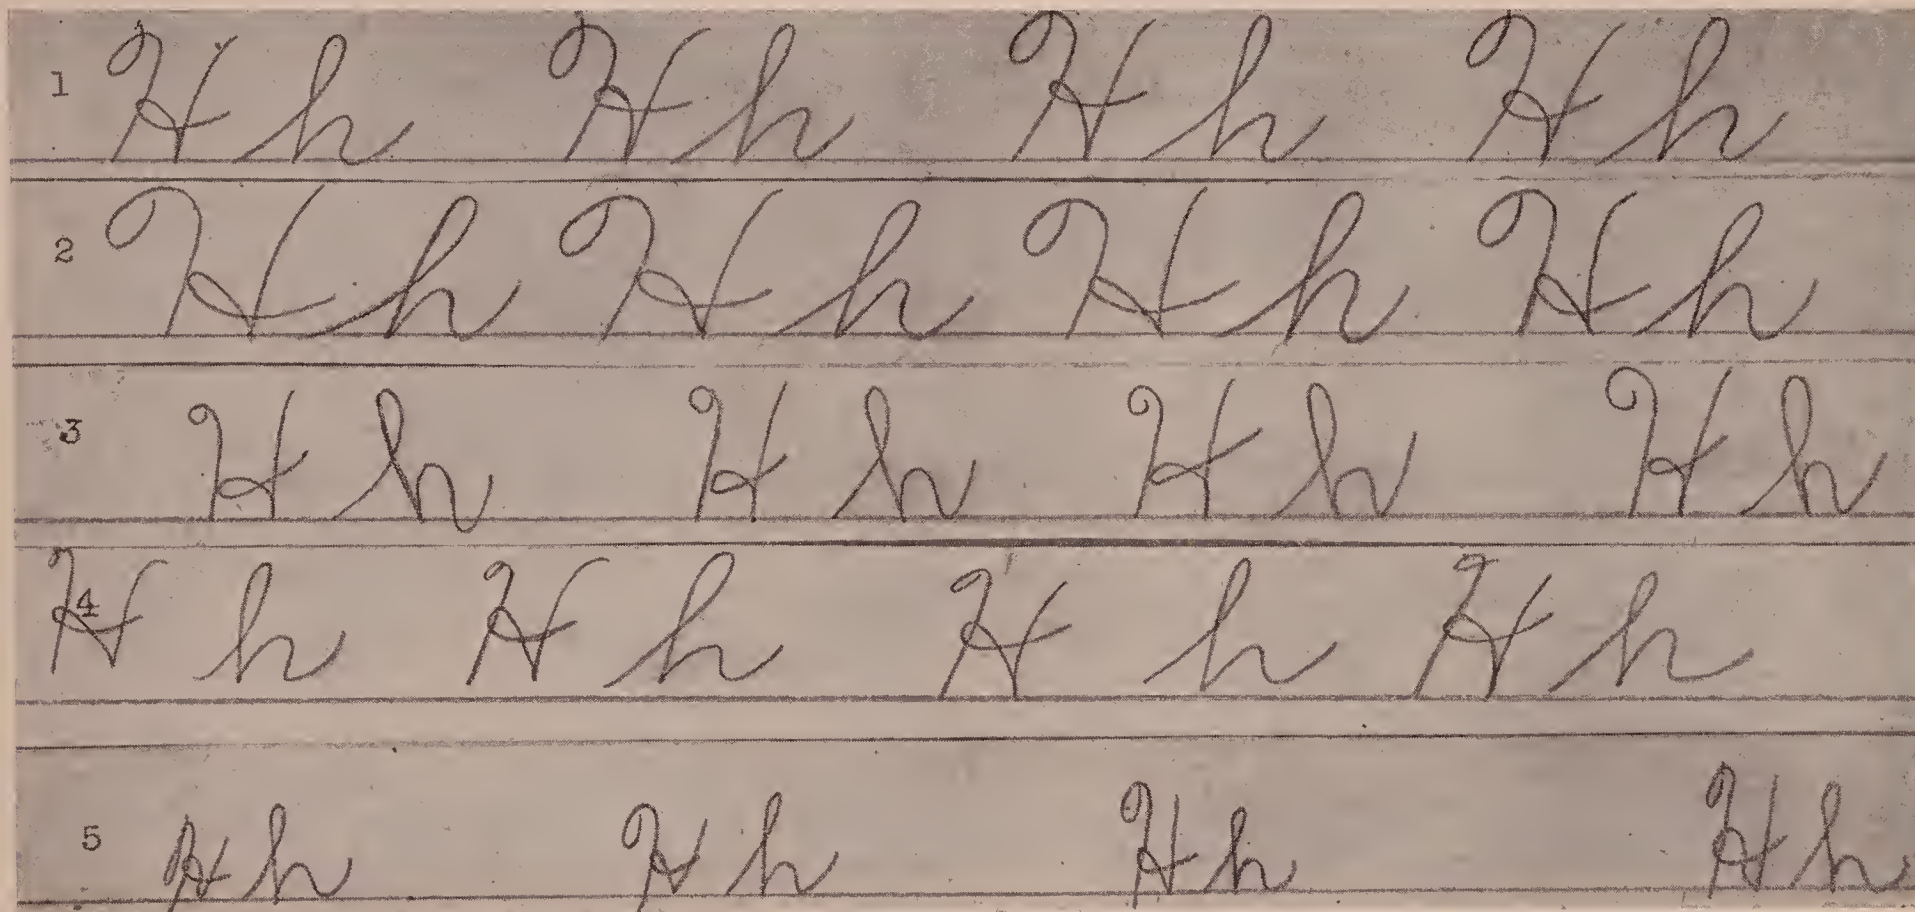 1 H h H h H h H h
2 H h H h H h H h
3 H h H h H h H h
4 H h H h H h H h
5 H h H h H h H h